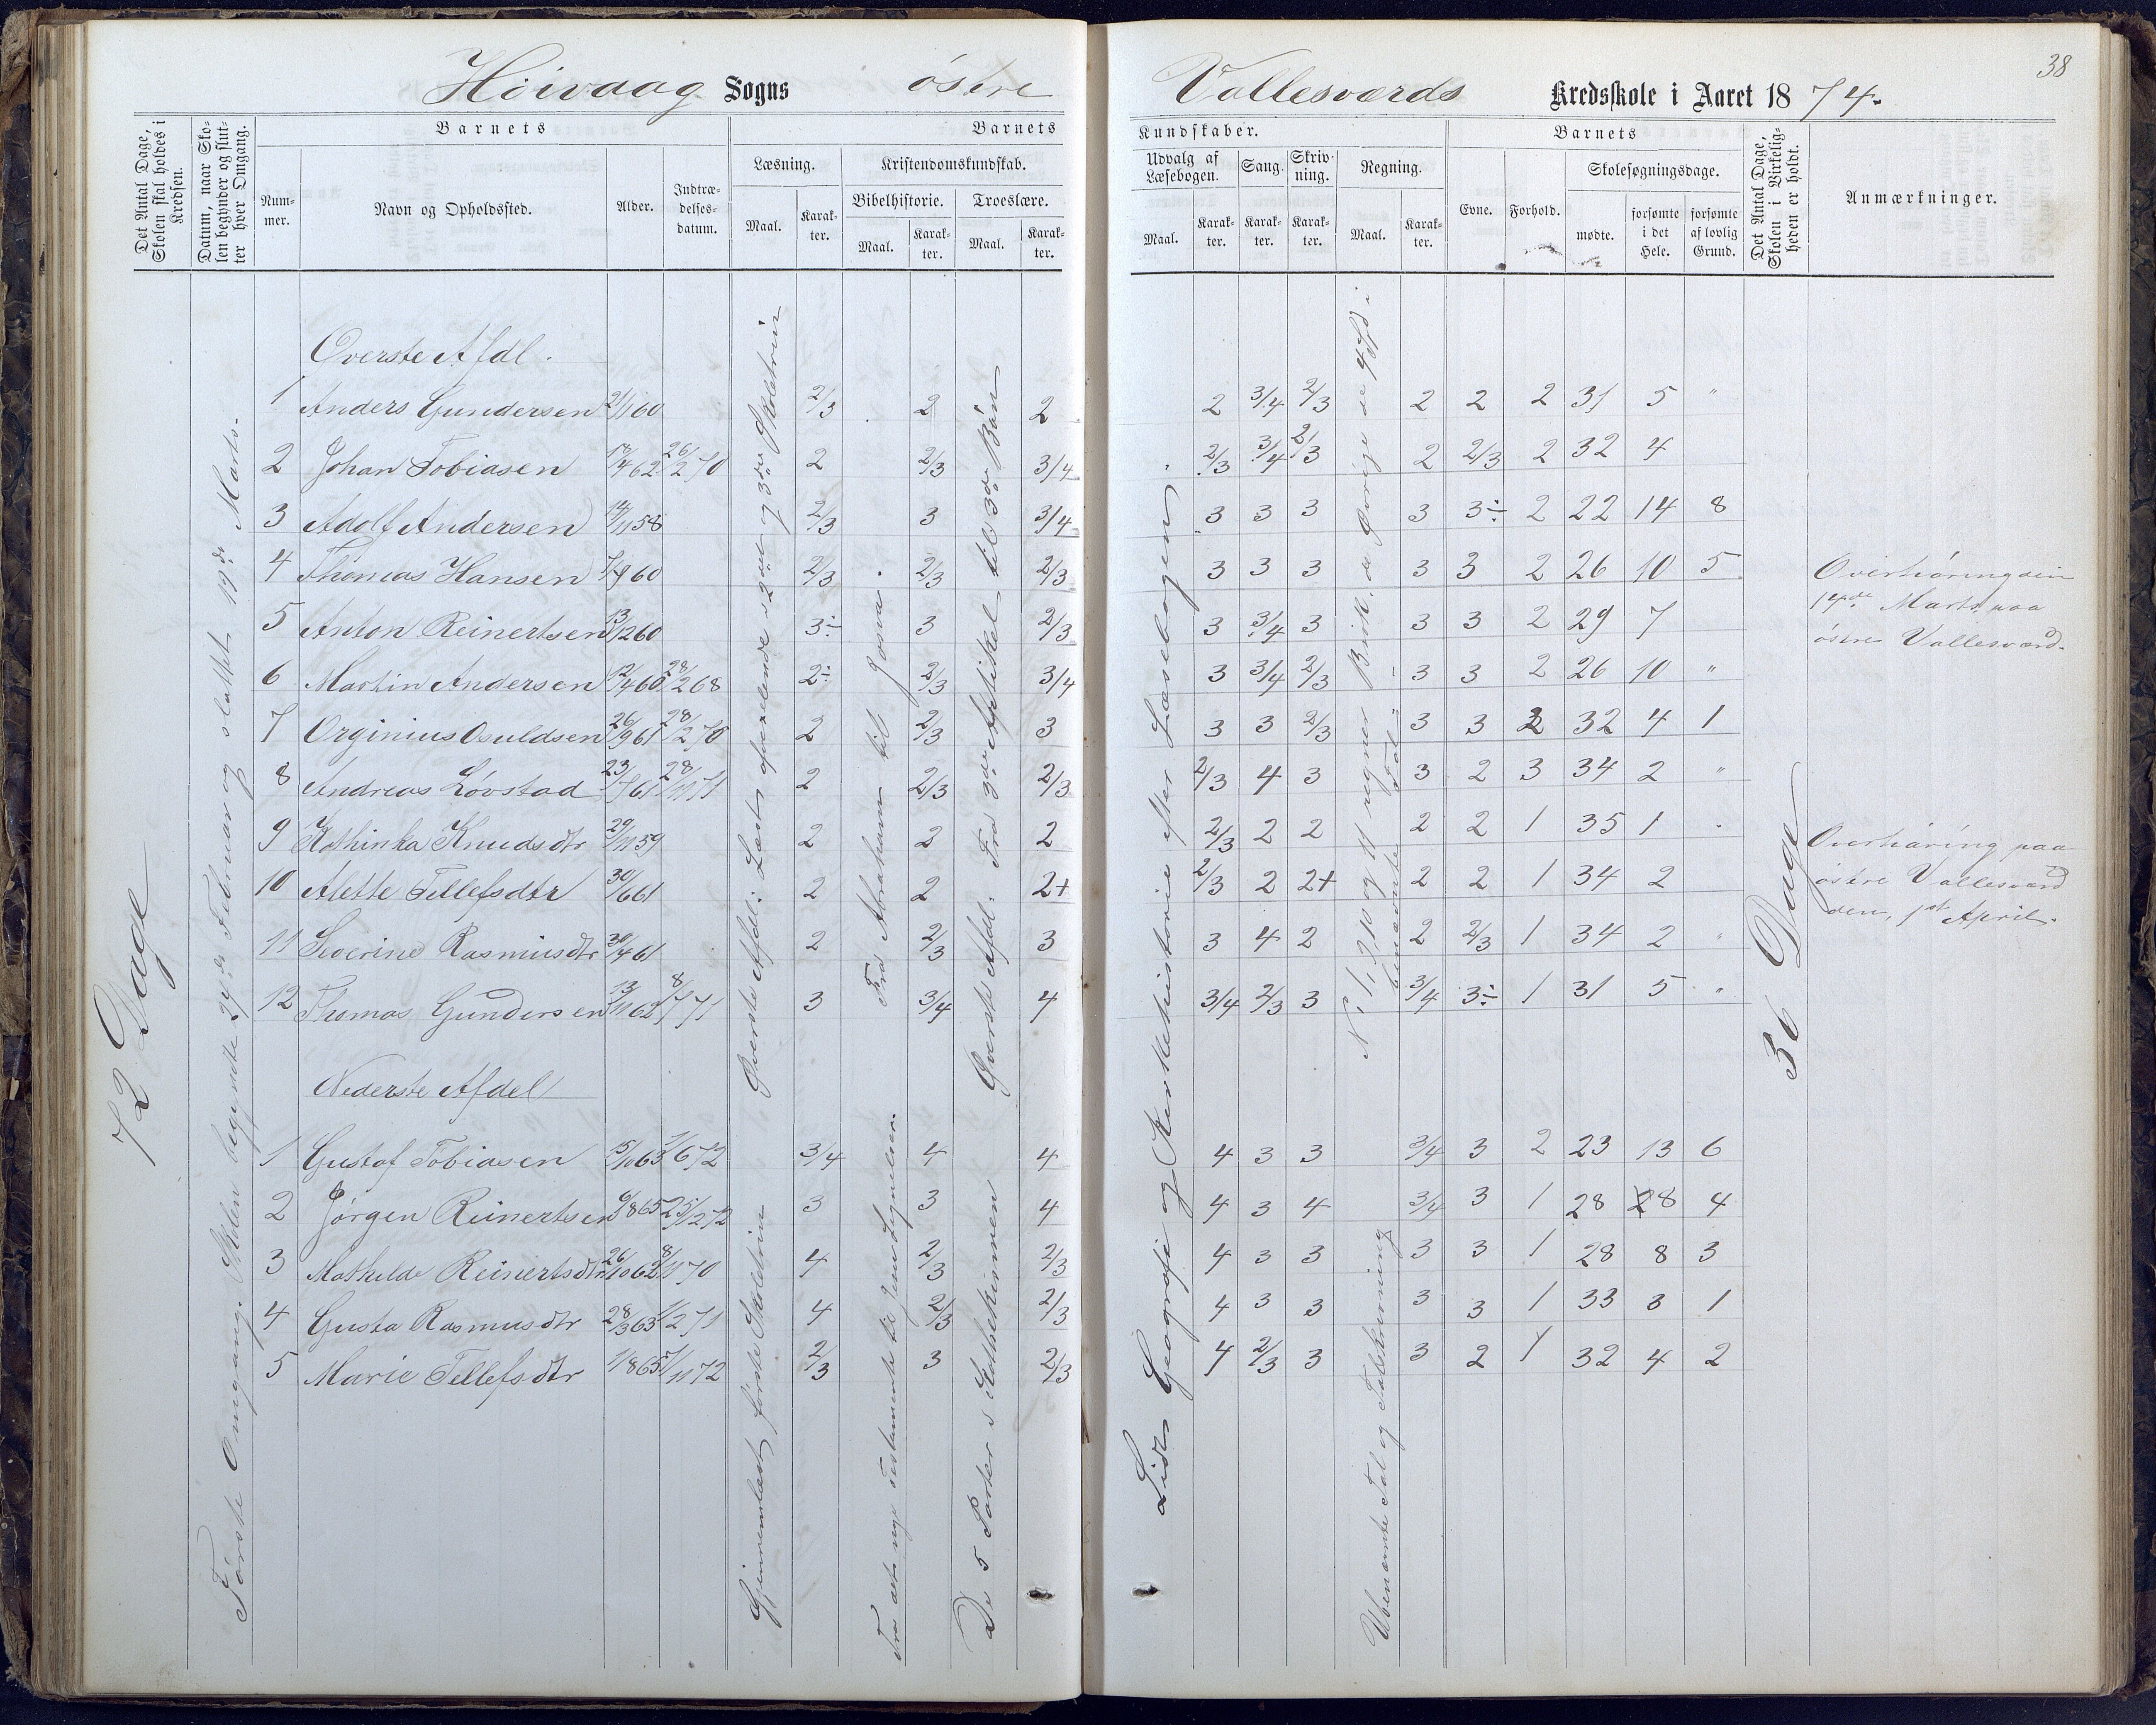 38
Høivaag Sogns østre Vallesværds Kredsskole i Aaret 1874.
Det Antal Dage, Skolen skal holdes i Kredsen.
Datum, naar Skolen begynder og slutter hver Omgang.
Barnets
Nummer.
Navn og Opholdssted.
Alder.
Indtrædelsesdatum.
Barnets
Læsning.
Maal.
Karakter.
Kristendomskundskab.
Bibelhistorie.
Maal.
Karakter.
Troeslære.
Maal.
Karakter.
Kundskaber.
Udvalg af Læsebogen.
Maal.
Karakter.
Sang.
Karakter.
Skrivning.
Karakter.
Regning.
Maal.
Karakter.
Barnets
Evne.
Forhold.
Skolesøgningsdage.
mødte.
forsømte i det Hele.
forsømte af lovlig Grund.
Det Antal Dage, Skolen i Virkeligheden er holdt.
Anmærkninger.
72 Dage
Første Omgang. Skolen begyndte 29de Februar og sluttet 19de Marts.
Øverste Afdl: Læste afvexlende 2det og 3die Skoletrin
Gjennemlæst første Skoletrin
Fra Abrahams til Josva.
Fra det nye Testamente til Jesu Lignelser.
Øverste Afd: Fra 2den Artikel til 3die Bøn
De 5 Parter i Kathekismen
Lidt Geografi og Kirkehistorie efter Læsebogen
N. 1, 2, 10 og 11 regner Brøk, de Øvrige de 4 Sp i benævnte Tal.
Ubenævnte Tal og Talskrivning
36 Dage
Overste Afdl.
1 Anders Gundersen 21/1 60 2/3 2 2 2 3/4 2/3 2 2 2 31 5 "
2 Johan Tobiasen 17/4 62 26/2 70 2 2/3 3/4 2/3 3/4 2/3 2 2/3 2 32 4
3 Adolf Andersen 14/11 58 2/3 3 3/4 3 3 3 3 3÷ 2 22 14 8
4 Thomas Hansen 7/9 60 2/3 2/3 2/3 3 3 3 3 3 2 26 10 5
5 Anton Reinertsen 13/12 60 3÷ 3 2/3 3 3/4 3 3 3 2 29 7
6 Martin Andersen 12/4 60 28/2 68 2÷ 2/3 3/4 3 3/4 2/3 3 3 2 26 10 "
7 Orginius Osuldsen 26/9 61 28/2 70 2 2/3 3 3 3 2/3 3 3 2 32 4 1
8 Andreas Løvstad 23/7 61 28/11 71 2 2/3 2/3 2/3 4 3 3 2 3 34 2 "
9 Kathinka Knudsdtr 29/11 59 2 2 2 2/3 2 2 2 2 1 35 1 "
10 Alette Tellefsdtr 30/6 61 2 2 2+ 2/3 2 2+ 2 2 1 34 2
11 Severine Rasmusdtr 30/4 61 2 2/3 3 3 4 2 2 2/3 1 34 2 "
12 Thomas Gundersen 13/11 62 8/7 71 3 3/4 4 3/4 2/3 3 3/4 3÷ 1 31 5 "
Nederste Afdel
1 Gustaf Tobiasen 15/10 63 7/6 72 3/4 4 4 4 3 3 3/4 3 2 23 13 6
2 Jørgen Reinertsen 6/8 65 25/12 72 3 3 4 4 3 4 3/4 3 1 28 8 4
3 Mathilde Reinertsdtr 26/10 62 8/11 70 4 2/3 2/3 4 3 3 3 3 1 28 8 3
4 Gusta Rasmusdtr 28/3 63 1/2 71 4 2/3 2/3 4 3 3 3 3 1 33 3 1
5 Marie Tellefsdtr 1/8 65 7/11 72 2/3 3 2/3 4 2/3 3 3 2 1 32 4 2
Overhøring den
17de Marts paa
østre Vallesværd.
Overhøring paa
østre Vallesværd
den 1st April.